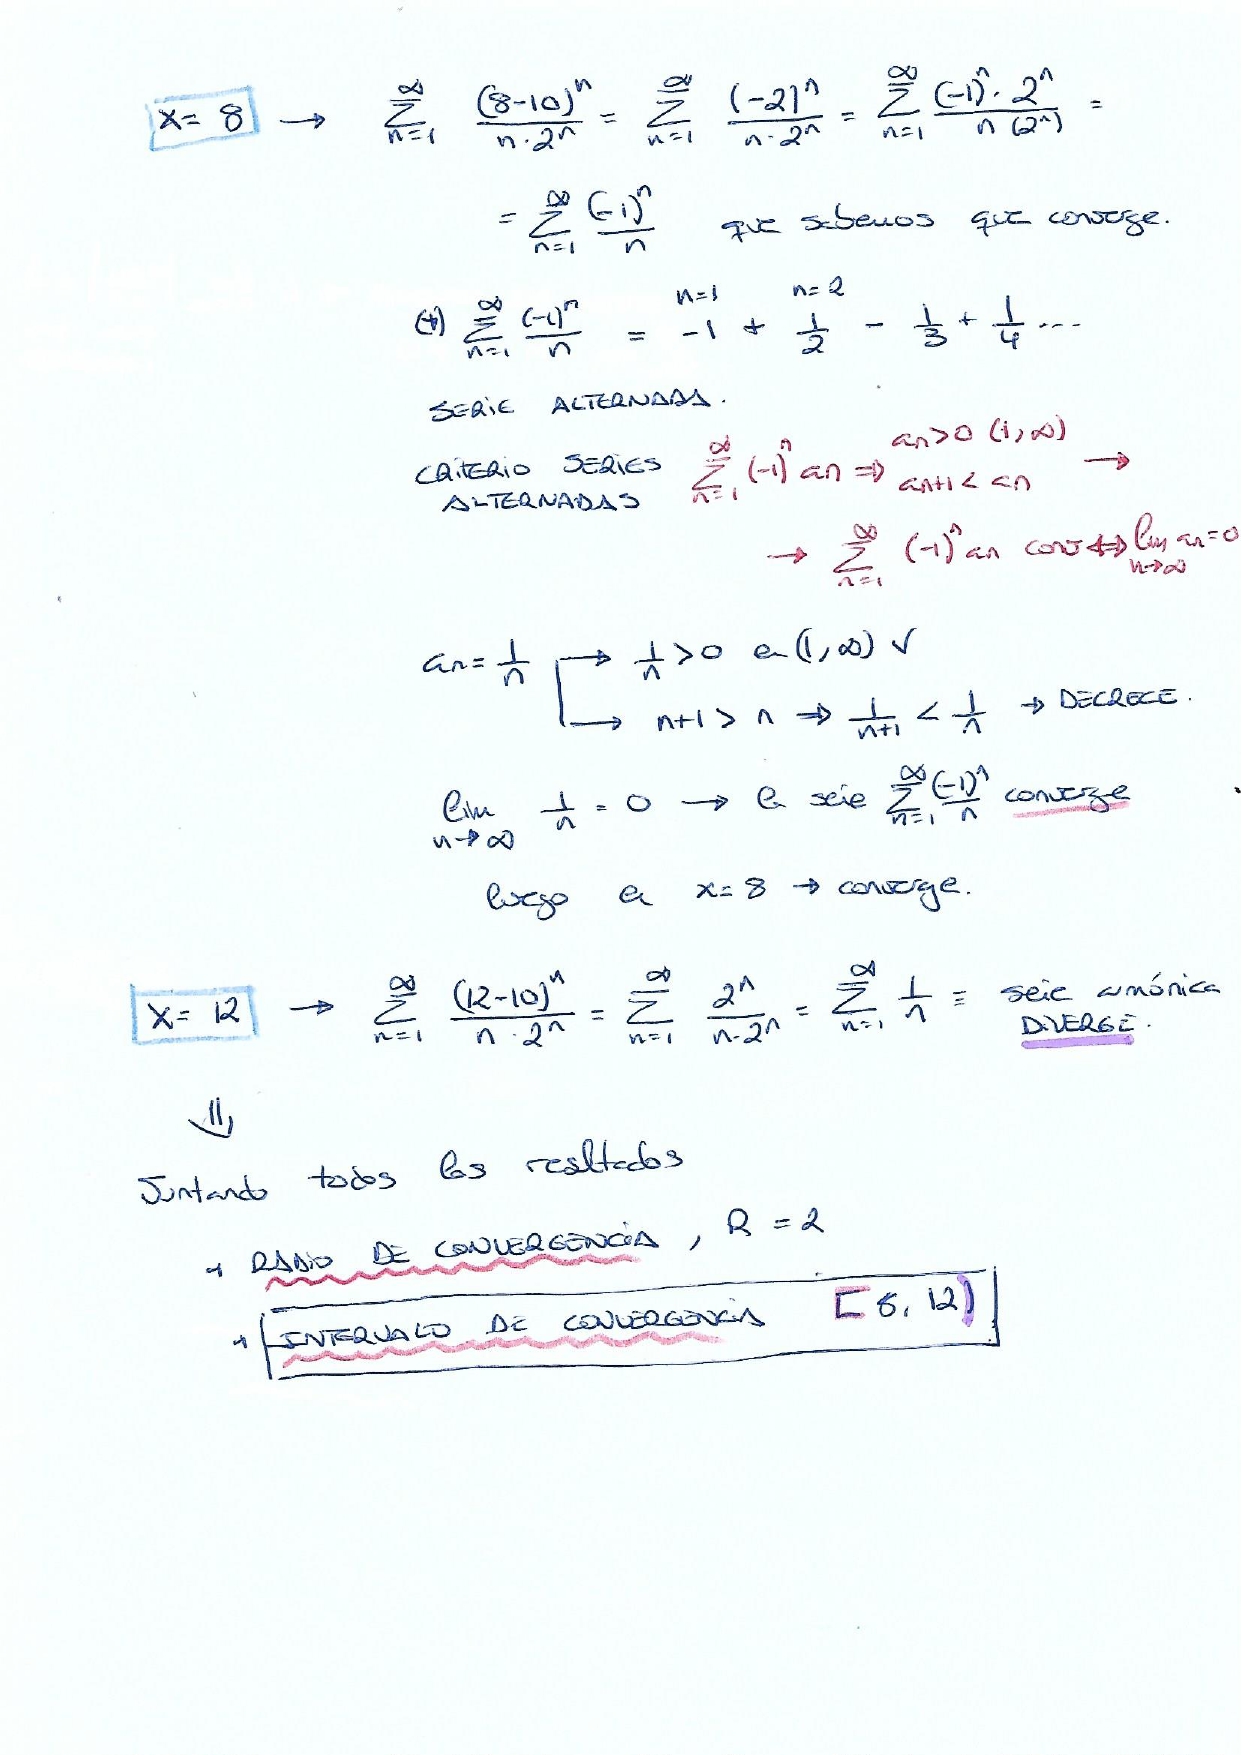 x = 8 → ∑_{n=1}^{∞} (8-10)^n / (n · 2^n) = ∑_{n=1}^{∞} (-2)^n / (n · 2^n) = ∑_{n=1}^{∞} (-1)^n · 2^n / (n (2^n)) =
= ∑_{n=1}^{∞} (-1)^n / n que sabemos que converge.
n=1 n=2
(*) ∑_{n=1}^{∞} (-1)^n / n = -1 + 1/2 - 1/3 + 1/4 ...
SERIE ALTERNADA.
CRITERIO SERIES ALTERNADAS ∑_{n=1}^{∞} (-1)^n an ⇒ an > 0 (1, ∞) an+1 < an →
→ ∑_{n=1}^{∞} (-1)^n an conv ⇔ lim_{n→∞} an = 0
an = 1/n → 1/n > 0 en (1, ∞) ✓
→ n+1 > n ⇒ 1/(n+1) < 1/n → DECRECE.
lim_{n→∞} 1/n = 0 → la serie ∑_{n=1}^{∞} (-1)^n / n converge
luego en x = 8 → converge.
x = 12 → ∑_{n=1}^{∞} (12-10)^n / (n · 2^n) = ∑_{n=1}^{∞} 2^n / (n · 2^n) = ∑_{n=1}^{∞} 1/n ≡ serie armónica DIVERGE.
⇓
Juntando todos los resultados
→ RADIO DE CONVERGENCIA, R = 2
→ INTERVALO DE CONVERGENCIA [8, 12)